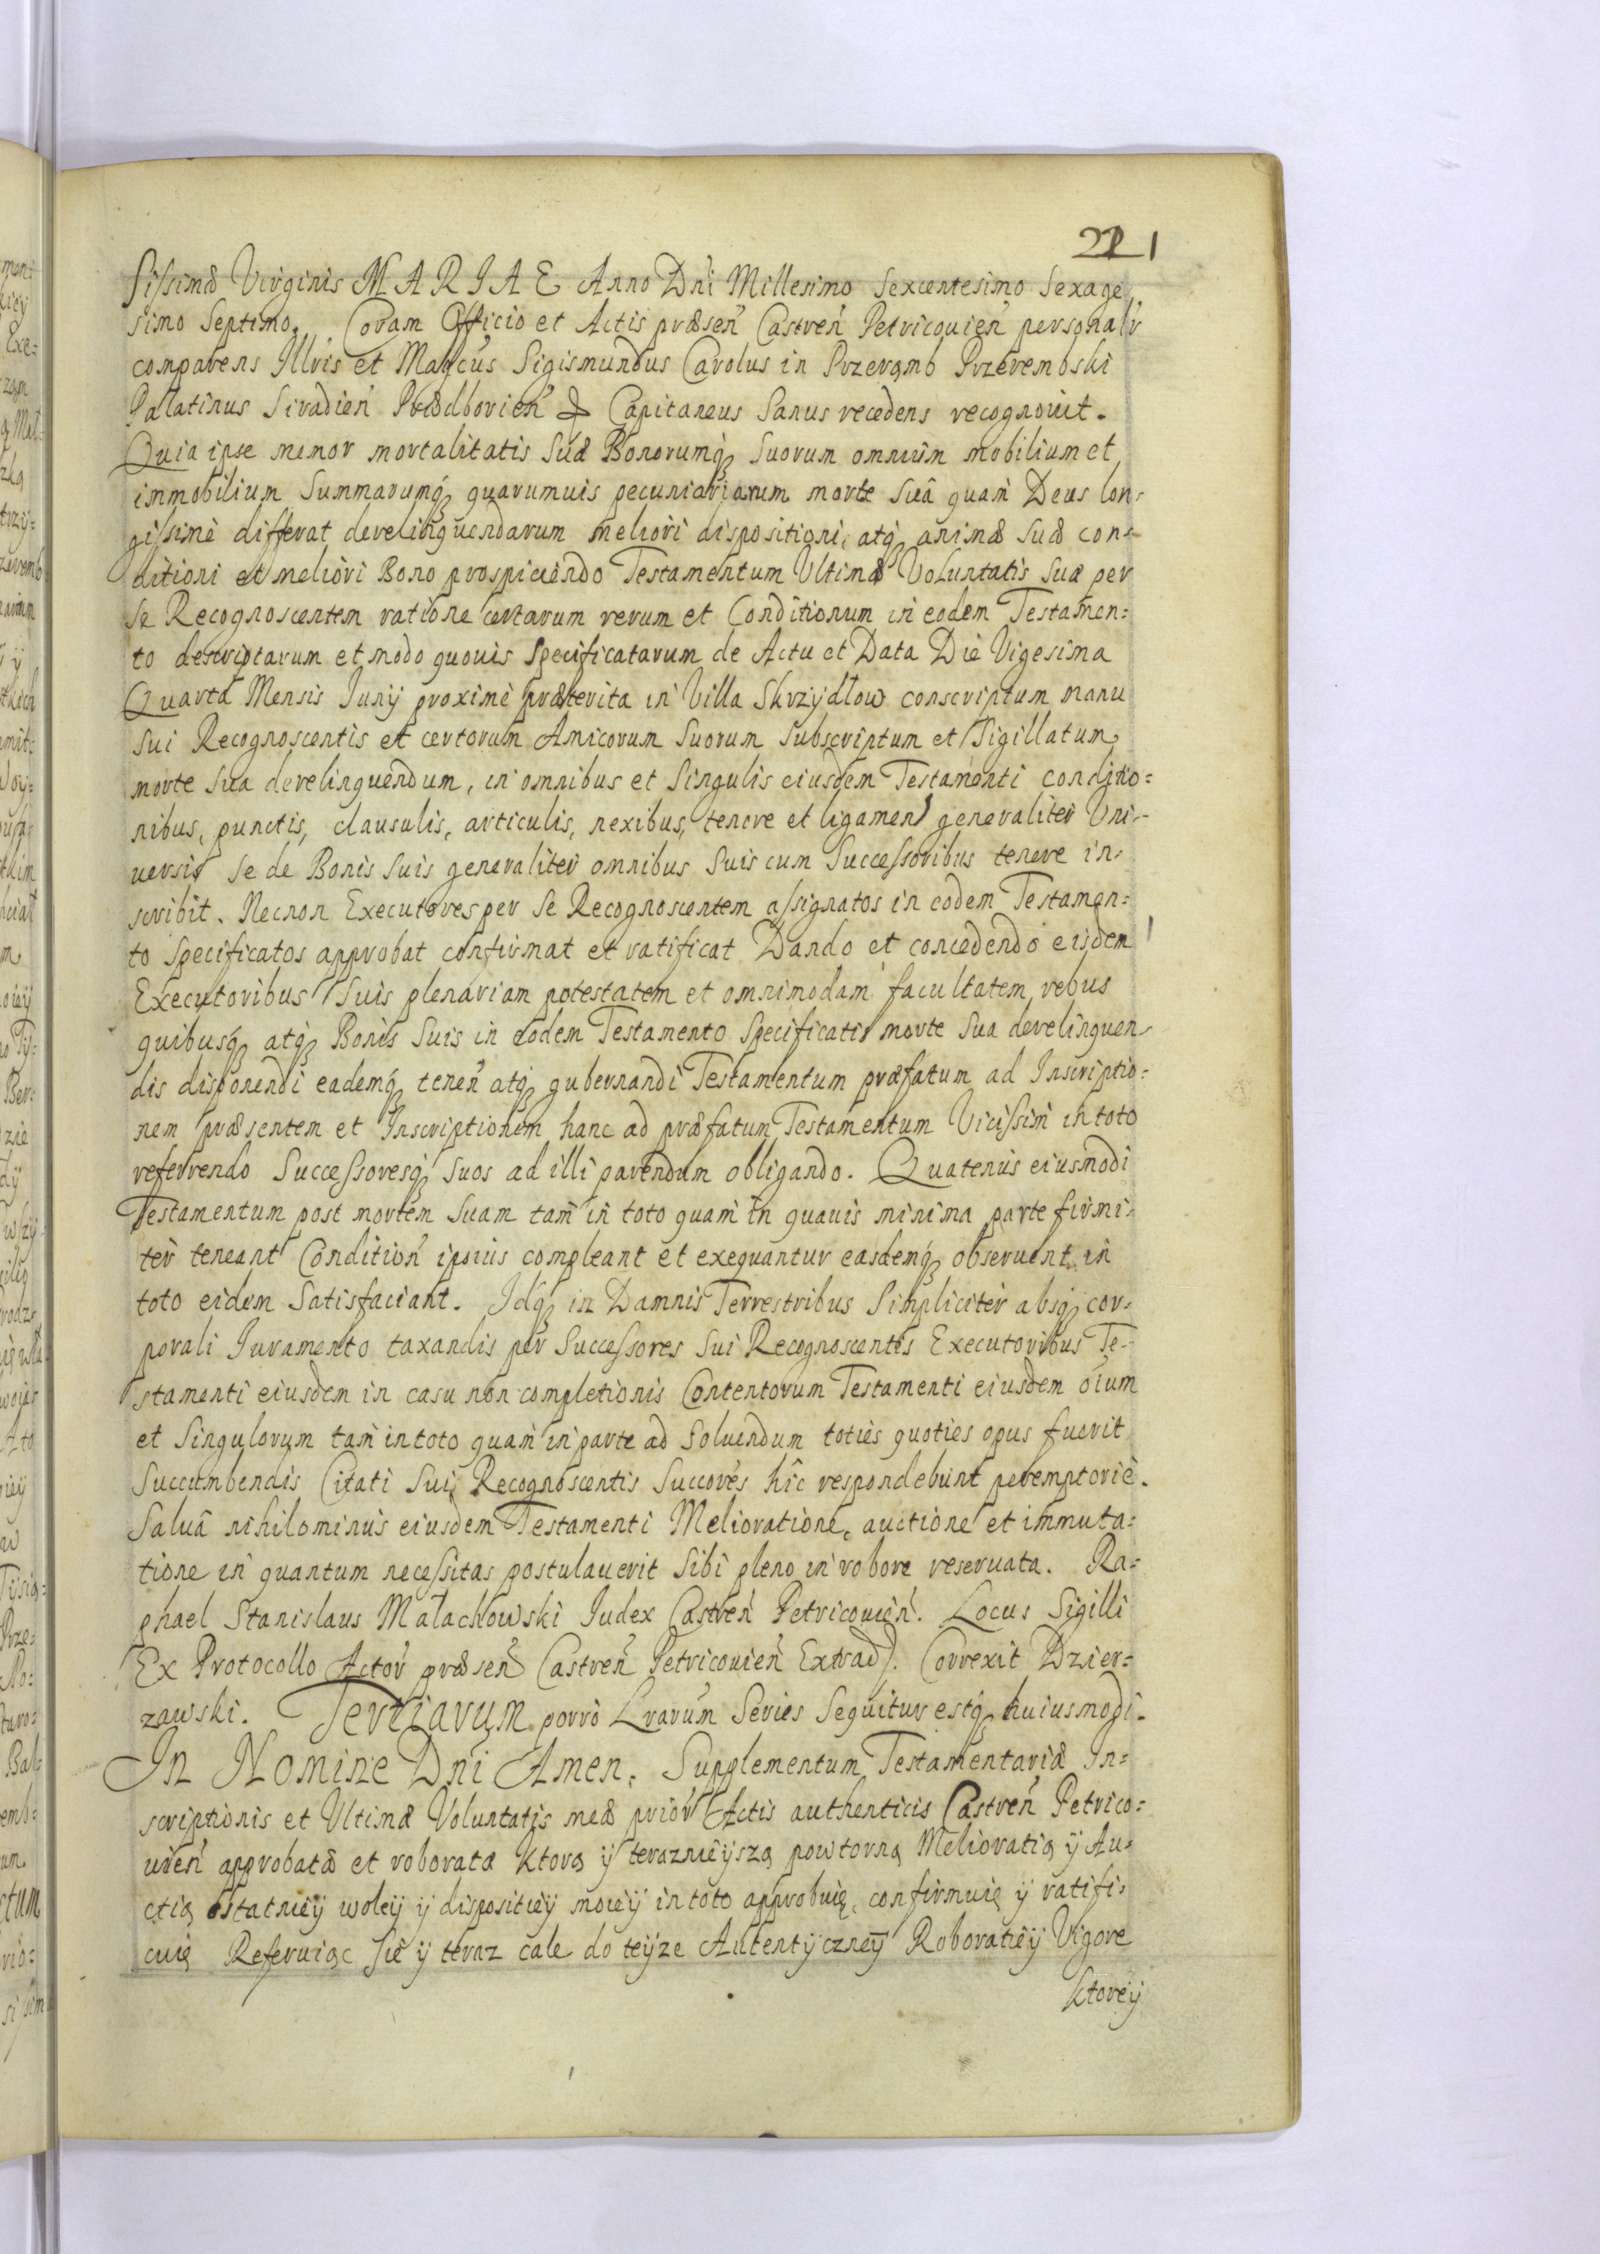 221
sissimæ Virginis MARIAE Anno Dni Millesimo Sexcentesimo Sexage,
simo Septimo. Coram Officio et Actis præsen Castren Petricouien personalr
comparens Illris et Magcus Sigismundus Carolus in Przeramb Przerembski
Palatinus Siradien Prædborien & Capitaneus Sanus recedens recognouit.
Quia ipse memor mortalitatis Suæ Bonorumq3 Suorum omnium mobilium et
immobilium Summarumq3 quarumuis pecuniariarum morte Suâ quam Deus lon-
gissimè differat derelinquendarum meliori dispositioni, atq3 animæ Suæ con-
ditioni et meliori Bono prospiciendo Testamentum Ultimæ Voluntatis Suæ per
Se Recognoscentem ratione certarum rerum et Conditionum in eodem Testamen:
to descriptarum et modo quouis Specificatarum de Actu et Data Die Vigesima
Quarta Mensis Junÿ proximè præterita in Villa Skrzydlow conscriptum manu
Sui Recognoscentis et certorum Amicorum Suorum Subscriptum et Sigillatum
morte Sua derelinquendum, in omnibus et Singulis eiusdem Testamenti conditio:
nibus, punctis, clausulis, articulis, nexibus, tenore et ligamen generaliter Vni-
uersis Se de Bonis Suis generaliter omnibus Suis cum Successoribus tenere in-
scribit. Necnon Executores per Se Recognoscentem assignatos in eodem Testamen:
to Specificatos approbat confirmat et ratificat Dando et concedendo eisdem
Executoribus Suis plenariam potestatem et omnimodam facultatem rebus
quibusq3 atq3 Bonis Suis in eodem Testamento Specificatis morte Sua derelinquen-
dis disponendi eademq3 tenen atq3 gubernandi Testamentum præfatum ad Inscriptio:
nem præsentem et Inscriptionem hanc ad præfatum Testamentum Vicissim in toto
referrendo Successoresq3 Suos ad illi parendum obligando. Quatenus eiusmodi
Testamentum post mortem Suam tam in toto quam in quauis minima parte firmi-
ter teneant Condition ipsius compleant et exequantur easdemq3 obseruent in
toto eidem Satisfaciant. Idq3 in Damnis Terrestribus Simpliciter absq3 cor-
porali Iuramento taxandis per Successores Sui Recognoscentis Executoribus Te-
stamenti eiusdem in casu non completionis Contentorum Testamenti eiusdem oium
et Singulorum tam in toto quam in parte ad Soluendum toties quoties opus fuerit
Succumbendis Citati Sui Recognoscentis Succores hîc respondebunt peremptoriè.
Saluâ nihilominus eiusdem Testamenti Melioratione, auctione et immuta:
tione in quantum necessitas postulauerit Sibi pleno in robore reseruata. Ra:
phael Stanislaus Małachowski Iudex Castren Petricouien. Locus Sigilli
Ex Protocollo Actor præsen Castren Petricouien Extrad. Correxit Dzier:
zawski. Tertiarum porrò Lrarum Series Sequitur estq3 huiusmodi.
In Nomine Dni Amen. Supplementum Testamentariæ In:
scriptionis et Ultimæ Voluntatis meæ prior Actis authenticis Castren Petrico:
uien approbatæ et roboratæ Ktorą ÿ teraznieÿszą powtorną Melioratią ÿ Au:
ctią ostatnieÿ woleÿ ÿ dispositieÿ moieÿ in toto approbuię, confirmuię ÿ ratifi-
cuię Referuiąc Się ÿ teraz cale do teÿze Autentÿczneÿ Roboratieÿ Vigore
Ktoreÿ